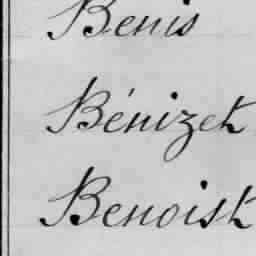 Benis
Bénizet
Benoist